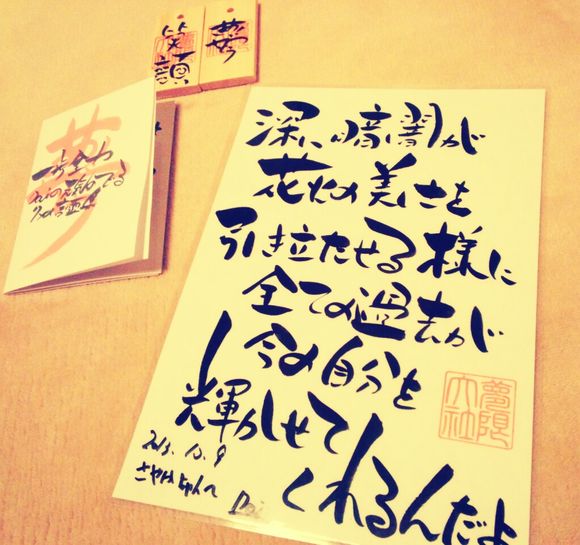 笑顔
夢
夢
深い暗闇が
花火の美しさを
引き立たせる様に
全ての過去が
今の自分を
輝かせて
くれるんだよ
2013.10.9
さやかちゃんへ
Dai